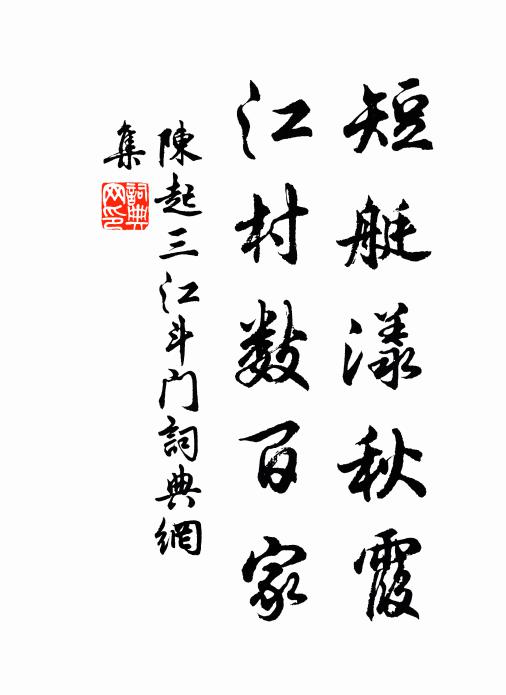 短艇漾秋霞
江村数百家
陳起三江斗门詞典網
集
詞典網印